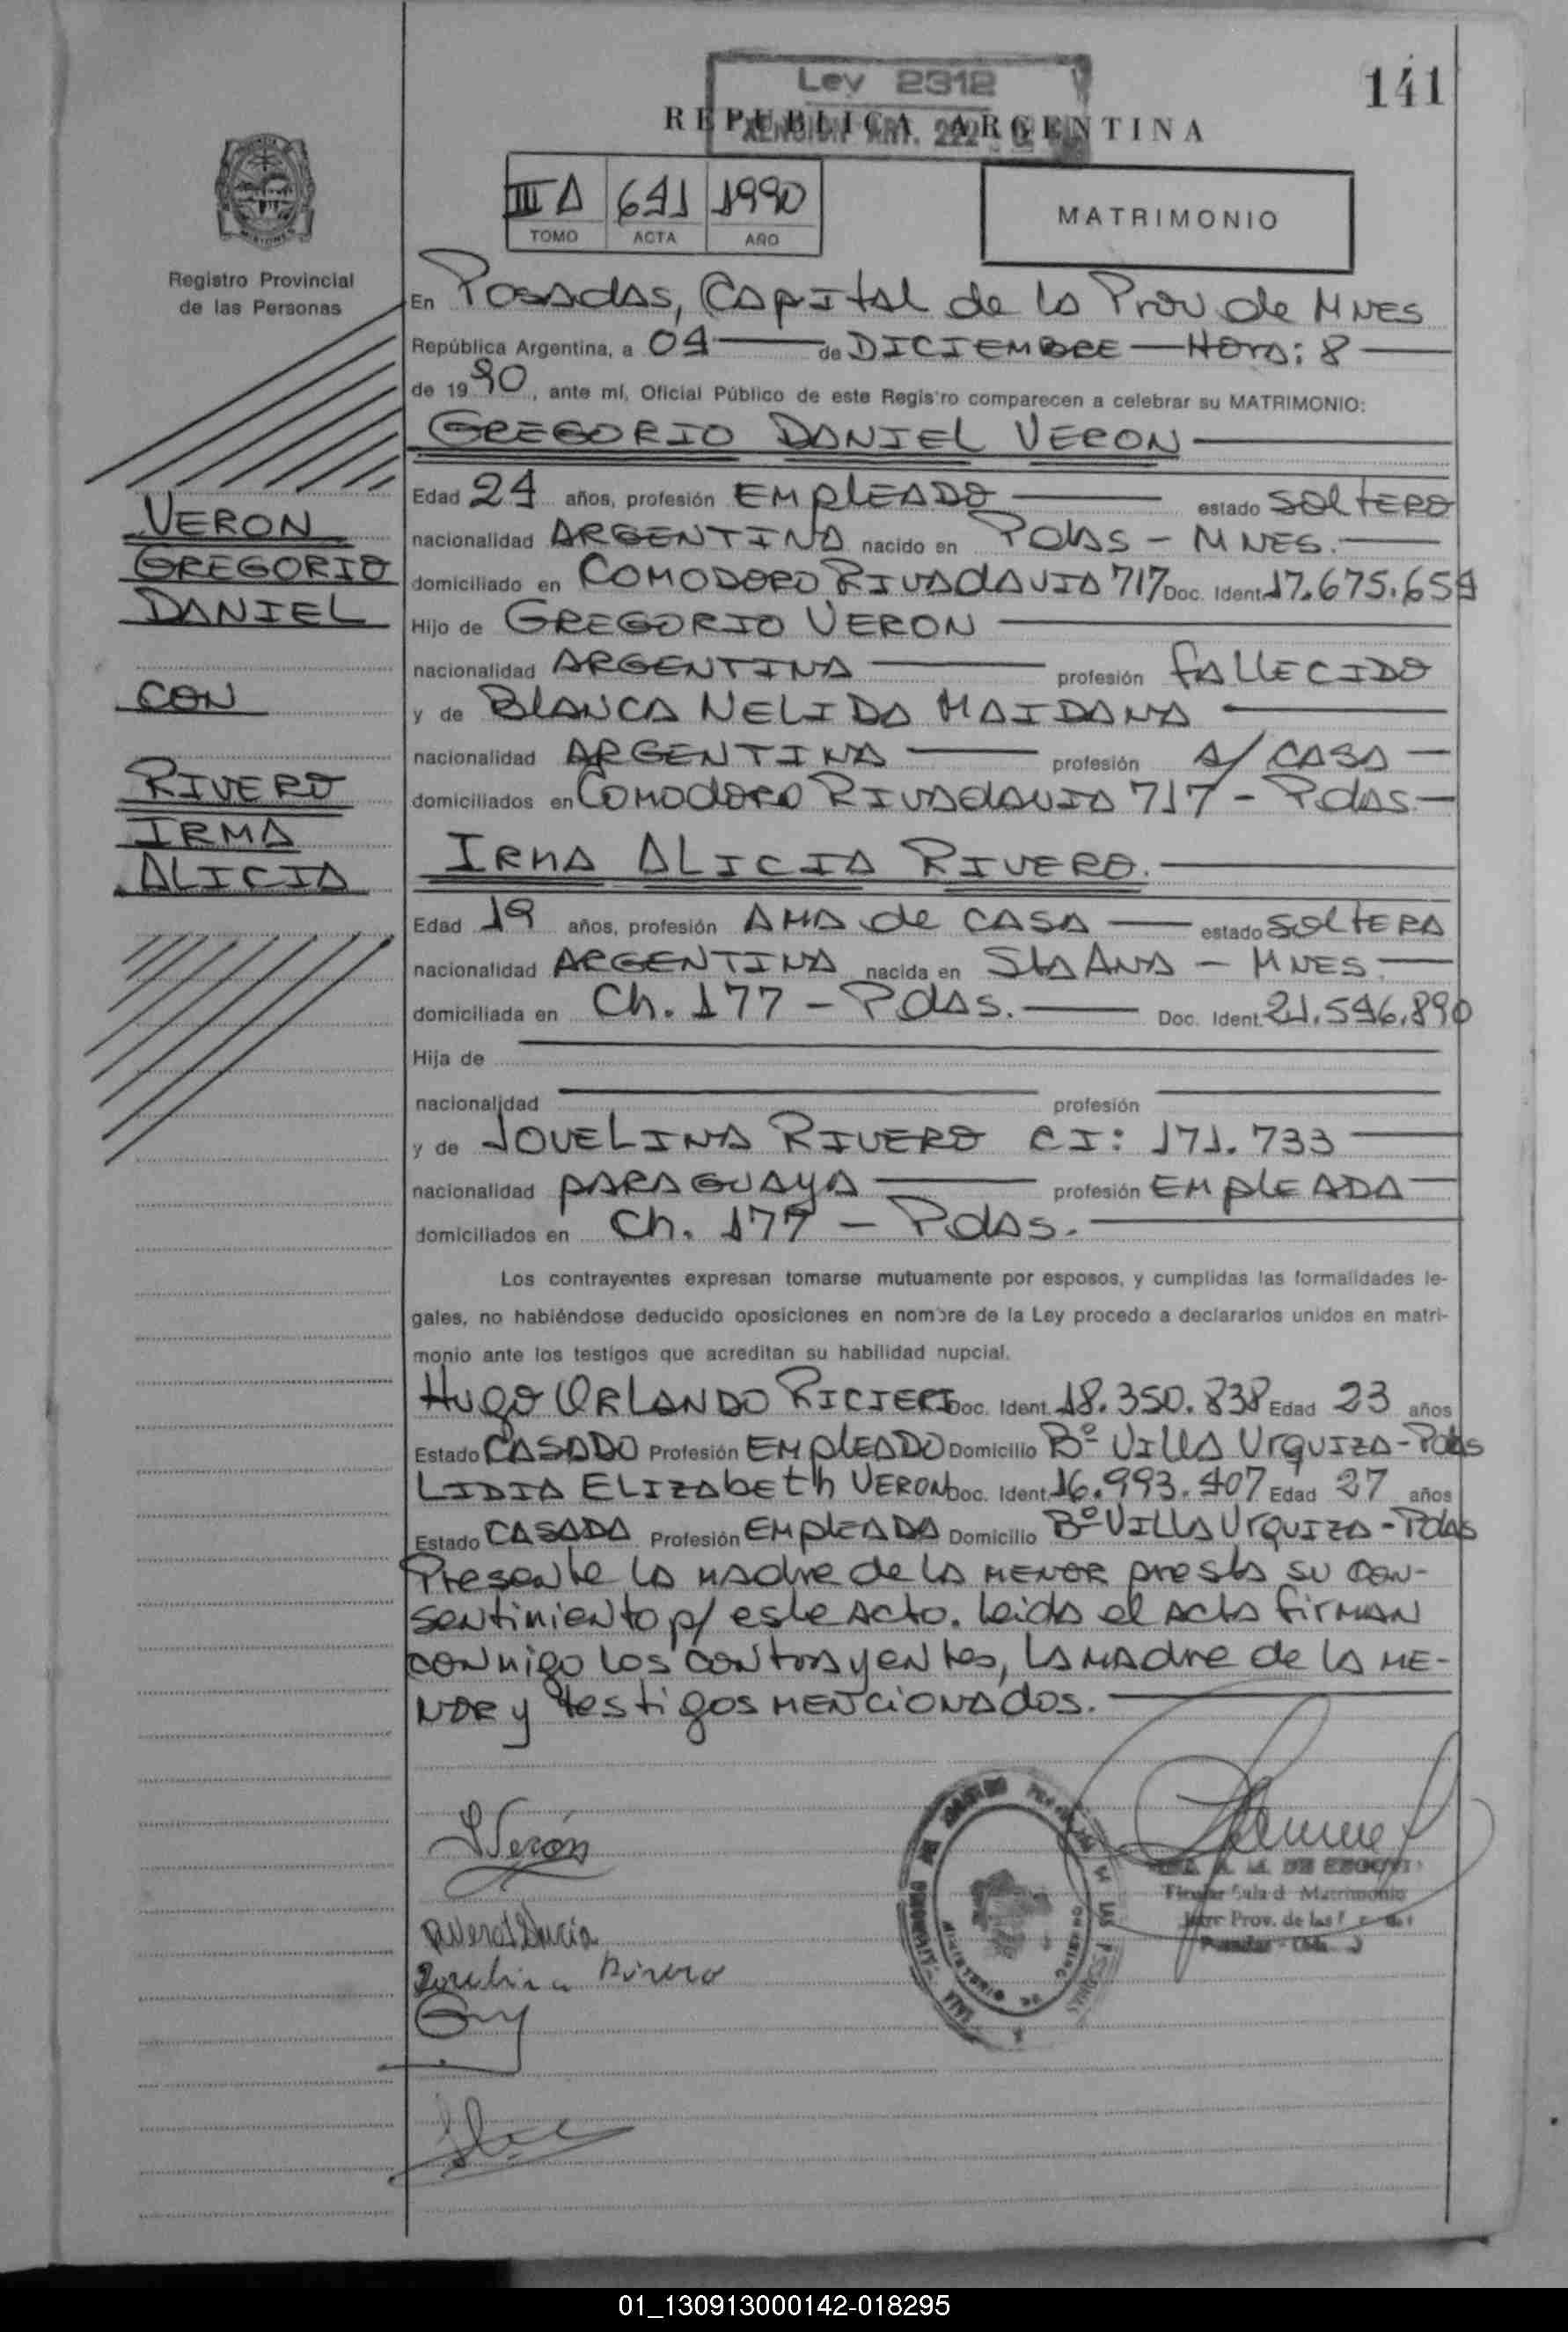 141
Ley 2312
REPUBLICA ARGENTINA
III A 641 1990
TOMO ACTA AÑO
MATRIMONIO
Registro Provincial
de las Personas
En Posadas, Capital de la Prov de MNES
República Argentina, a 04 de DICIEMBRE Hora: 8
de 1990, ante mí, Oficial Público de este Registro comparecen a celebrar su MATRIMONIO:
GREGORIO DANIEL VERON
Edad 24 años, profesión EMPLEADO estado SOLTERO
nacionalidad ARGENTINA nacido en Pdas - MNES.
domiciliado en COMODORO RIVADAVIA 717 Doc. Ident. 17.675.654
Hijo de GREGORIO VERON
nacionalidad ARGENTINA profesión FALLECIDO
y de BLANCA NELIDA MAIDANA
nacionalidad ARGENTINA profesión A/ CASA
domiciliados en COMODORO RIVADAVIA 717 - Pdas.
IRMA ALICIA RIVERO.
Edad 19 años, profesión AMA de CASA estado SOLTERA
nacionalidad ARGENTINA nacida en Sta ANA - MNES.
domiciliada en Ch. 177 - Pdas. Doc. Ident. 21.546.890
Hija de
nacionalidad profesión
y de JOVELINA RIVERO CI: 171.733
nacionalidad PARAGUAYA profesión EMPLEADA
domiciliados en Ch. 177 - Pdas.
Los contrayentes expresan tomarse mutuamente por esposos, y cumplidas las formalidades le-
gales, no habiéndose deducido oposiciones en nombre de la Ley procedo a declararlos unidos en matri-
monio ante los testigos que acreditan su habilidad nupcial.
HUGO ORLANDO RICIERI Doc. Ident. 18.350.838 Edad 23 años
Estado CASADO Profesión EMPLEADO Domicilio Bº VILLA URQUIZA - Pdas
LIDIA ELIZABETH VERON Doc. Ident. 16.993.407 Edad 27 años
Estado CASADA Profesión EMPLEADA Domicilio Bº VILLA URQUIZA - Pdas
Presente la madre de la menor presta su con-
sentimiento p/ este acto. Leida el acta firman
conmigo los contrayentes, la madre de la me-
nor y testigos mencionados.
VERON
GREGORIO
DANIEL
CON
RIVERO
IRMA
ALICIA
Verón
Jovelina Rivero
Titular Sala d Matrimonio
Prov. de las
01_130913000142-018295